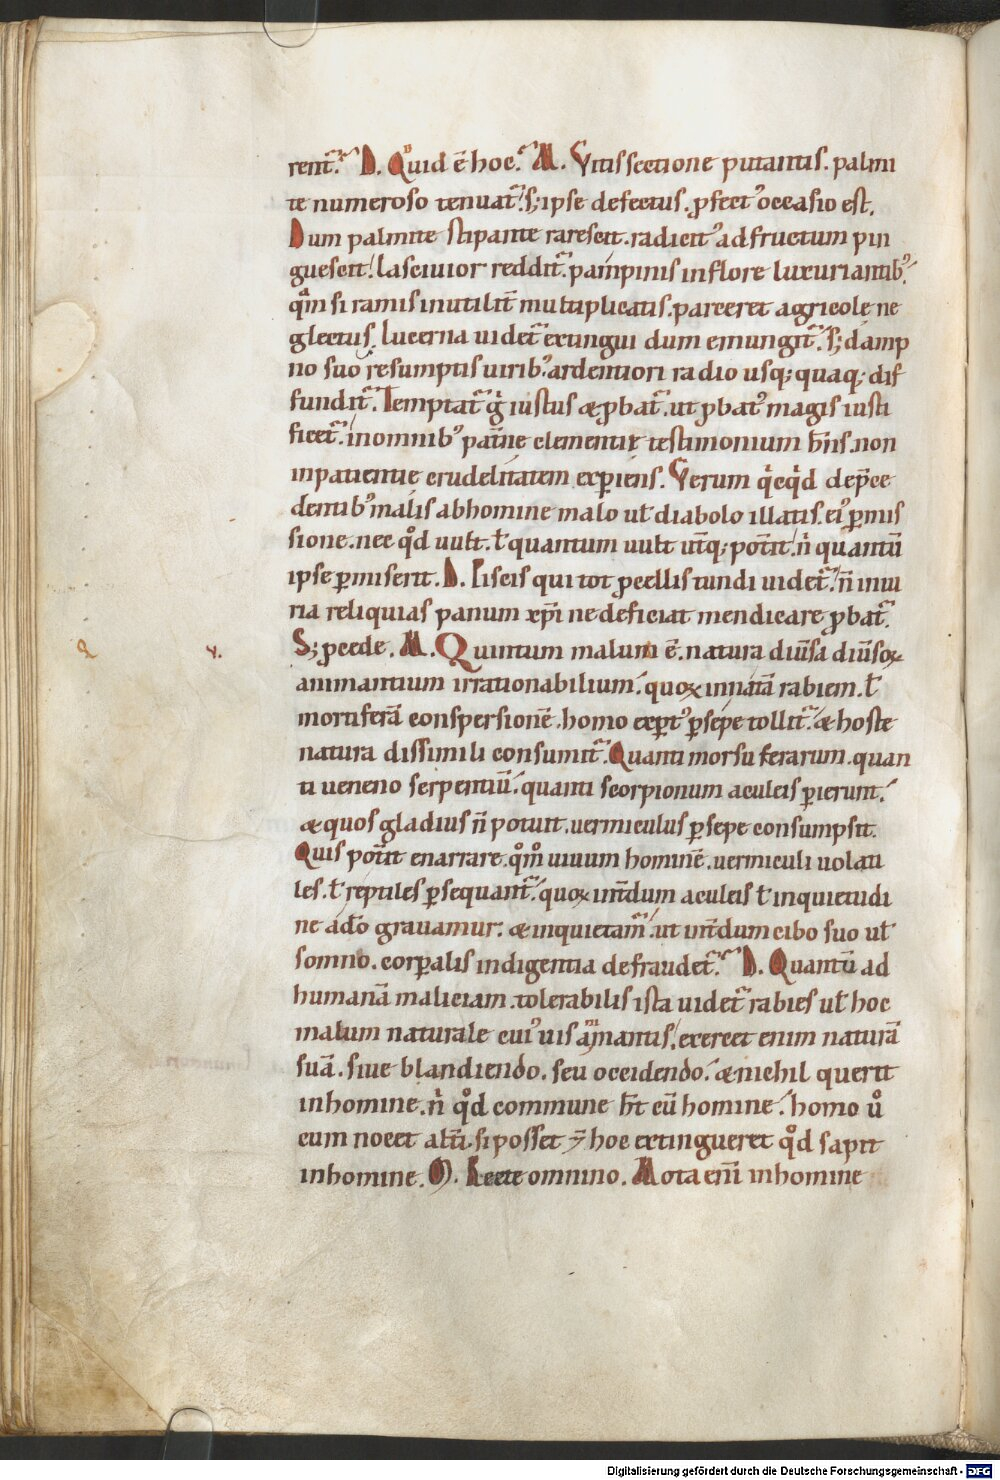 rent᷑. D. Quid ē hoc. M. Vitis sectione putantis. palmi
te numeroso tenuat᷑. s; ipse defectus. ꝓfect᷒ occasio est.
Dum palmite stipante rarescit. radicit᷒ ad fructum pin
guescit. lascivior reddit᷑. pampinis in flore luxuriantib᷒.
qͣm si ramis inutilit̄ multiplicatis. parceret agricolę ne
glectus. Lucerna uidet᷑ extingui dum emungit᷑. s; damp
no suo resumptis uirib᷒ ardentiori radio usq; quaq; dif
fundit᷑. Temptat᷑ gͥ iustus & ꝓbat᷑. ut ꝓbat᷒ magis iusti
ficet᷑. in omnib᷒ patn̄e clementię testimonium hn̄s. non
inpatientię crudelitatem exꝑiens. Verum qͥcqͥd de p̄ce
dentib᷒ malis ab homine malo ul̄ diabolo illatis. ei᷒ ꝑmis
sione. nec qͦd uult. l̄ quantum uult utiq; pot̄it. nͥ quantū
ipse ꝑmiserit. D. Piscis qui tot ꝓcellis tundi uidet᷑. n̄ iniu
ria reliquias panum xp̄i ne deficiat mendicare ꝓbat᷑.
S; ꝓcede. M. Quintum malum ē. natura diūsa diūsoꝝ
animantium irrationabilium. quoꝝ innatā rabiem. l̄
mortiferā conspersionē. homo exꝑt᷒ ꝑsepe tollit᷑. & hoste
natura dissimili consumit᷑. Quanti morsu ferarum. quan
ti ueneno serpentiū. quanti scorpionum aculeis ꝑierunt.
& quos gladius n̄ potuit. uermiculus ꝑsepe consumpsit.
Quis pot̄it enarrare. qͦmͦ uiuum hominē. uermiculi uolati
les. l̄ reptiles ꝑsequant᷑. quoꝝ int̄dum aculeis l̄ inquietudi
ne adeͦ grauamur. & inquietam᷑. ut int̄dum cibo suo ul̄
somno. corꝑalis indigentia defraudet᷑. D. Quantū ad
humanā maliciam. tolerabilis ista uidet᷑ rabies ul̄ hoc
malum naturale cui᷒uis aīmantis. exercet enim naturā
suā. siue blandiendo. seu occidendo. & nichil querit
in homine. nͥ qͦd commune ht̄ cū homine. homo uͦ
cum nocet alt̄i. si posset ⁊ hoc extingueret qͦd sapit
in homine. M. Recte omnino. Mota eni̅ in homine
Digitalisierung gefördert durch die Deutsche Forschungsgemeinschaft - DFG